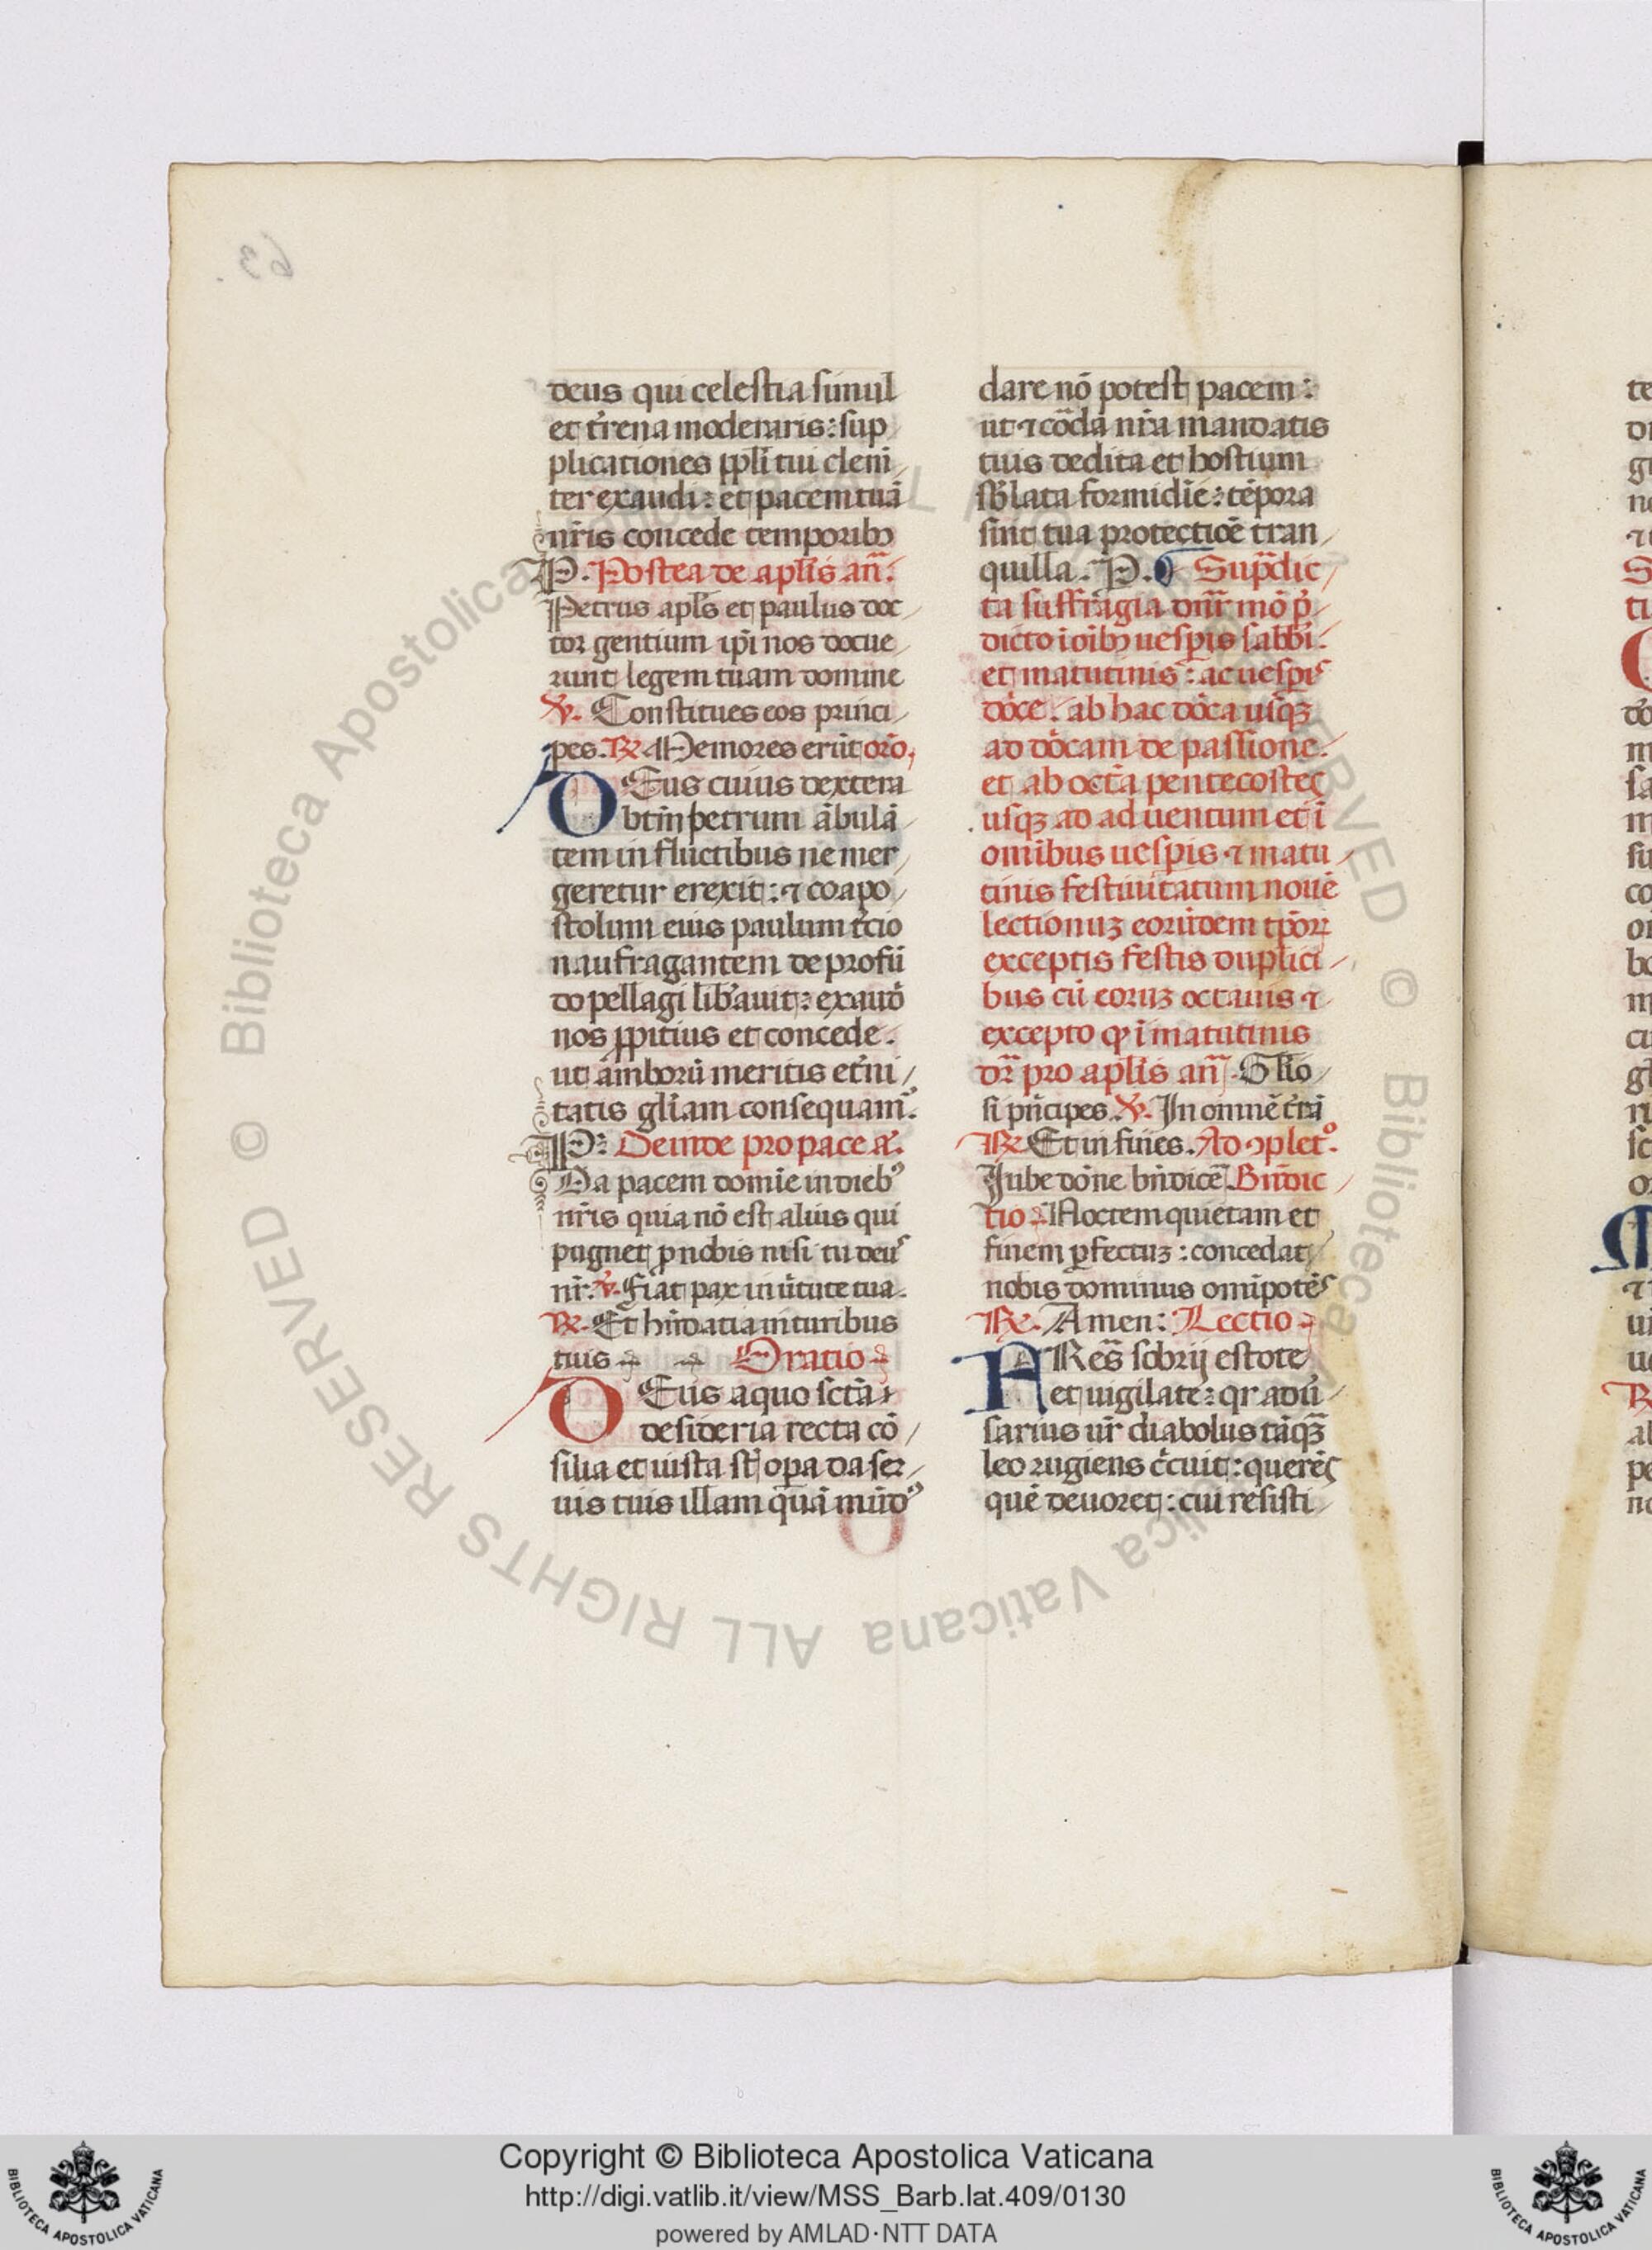 deus qui celestia simul
et t̉rena moderaris: sup
plicationes ppl̃i tui clem̃
ter exaudi: et pacem tuã
nr̃is concede temporibꝫ
P. Postea de apl̃is añ.
Petrus apl̃s et paulus doc
tor gentium ip̃i nos docue
runt legem tuam domine
℣. Constitues eos princi
pes. ℟ Memores erũt or̃o,
DEus cuius dextera
btm̃ petrum ãbulã
tem in fluctibus ne mer
geretur erexit: ⁊ coapo
stolum eius paulum t̉cio
naufragantem de profũ
do pellagi lib̉auit: exaud̉
nos ꝓpitius et concede.
ut ãmborũ meritis et̉ni
tatis gl̃iam consequam̃.
P: Deinde pro pace a.
Da pacem domĩe in diebꝰ
nr̃is quia nõ est alius qui
pugnet ꝓ nobis nisi tu deus
nr̃. ℣. Fiat pax in ũtute tua.
℟. Et hñdatia in turibus
tuis Oratio
DEus a quo sct̃a
desideria recta cõ
silia et iusta st̃ opa da ser
uis tuis illam quã mũdꝰ
dare nõ potest pacem:
ut ⁊ cõda nr̃a mandatis
tuis dedita et hostium
sb̃lata formidĩe: tẽpora
sint tua protectiõe tran
quilla. P. Sup̃dic
ta suffragia dnr̃ mõ p̉
dicto ĩ oĩbꝫ uesp̃is sabbi.
et matutinis: ac uesp̃is
dõce. ab hac dõca usqꝫ
ad dõcam de passione.
et ab oct̃a pentecostes
usqꝫ ad aduentum et ĩ
omĩbus uesp̃is ⁊ matu
tinis festiuitatum nouẽ
lectionuꝫ eorũdem tp̃oꝝ
exceptis festis duplici
bus cũ eoruꝫ octauis ⁊
excepto qͥ ĩ matutinis
dr̃ pro apl̃is añ. Glio
si pñcipes. ℣. In omnẽ t̉rã
℟ Et in fines. Ad ꝯpletº.
Iube dõne bñdicẽ. Bñdic
tio Noctem quietam et
finem ꝑfectuꝫ: concedat
nobis dominus omĩpotẽs
℟. Amen: Lectio
FRẽs sobrij estote
et uigilate: qr adũ
sarius ur̃ diabolus tãqꝫ
leo rugiens c̉cuit: querẽs
quẽ deuoret: cui resisti
Copyright © Biblioteca Apostolica Vaticana
http://digi.vatlib.it/view/MSS_Barb.lat.409/0130
powered by AMLAD·NTT DATA